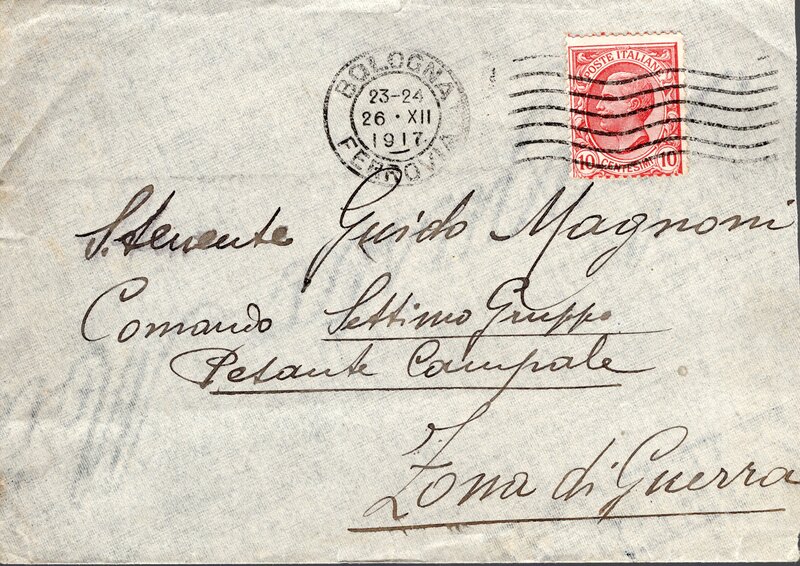 BOLOGNA
23-24
26 · XII
1917
FERROVIA
POSTE ITALIANE
10 CENTESIMI 10
S. Tenente Guido Magnoni
Comando Settimo Gruppo
Pesante Campale
Zona di Guerra